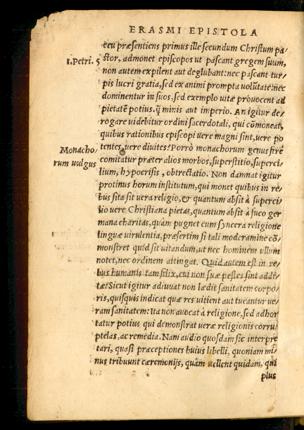 ERASMI EPISTOLA
ceu præsentiens primus ille secundum Christum pa
1. Petri. 5 stor, admonet episcopos ut pascant gregem suum,
non autem expilent aut deglubant: nec pascant tur-
pis lucri gratia, sed ex animi prompta uolūtate: nec
dominentur in suos. sed exemplo uitæ prouocent ad
pietatē potius, q̃ minis aut imperio. An igitur de-
rogare uidebitur ordini sacerdotali, qui cōmoneat,
quibus rationibus episcopi uere magni sint, uere po
Monacho- tentes, uere diuites? Porrò monachorum genus ferè
rum uulgus comitatur præter alios morbos, superstitio, superci-
lium, hypocrisis, obtrectatio. Non damnat igitur
protinus horum institutum, qui monet quibus in re-
bus sita sit uera religio, & quantum absit à superci-
lio uere Christiana pietas, quantum absit à fuco ger
mana charitas, quàm pugnet cum syncera religione
linguæ uirulentia, præsertim si tali moderamine cō-
monstret quid sit uitandum, ut nec hominem ullum
notet, nec ordinem attingat. Quid autem est in re-
bus humanis tam felix, cui non suæ pestes sint addi-
tæ? Sicut igitur adiuuat non lædit sanitatem corpo-
ris, quisquis indicat quæ res uitient aut tueantur ue-
ram sanitatem: ita non auocat à religione, sed adhor
tatur potius qui demonstrat ueræ religionis corru-
ptelas, ac remedia. Nam audio quosdam sic interpre-
tari, quasi præceptiones huius libelli, quoniam mi-
nus tribuunt cæremonijs, quàm uellent quidam, qui
plus